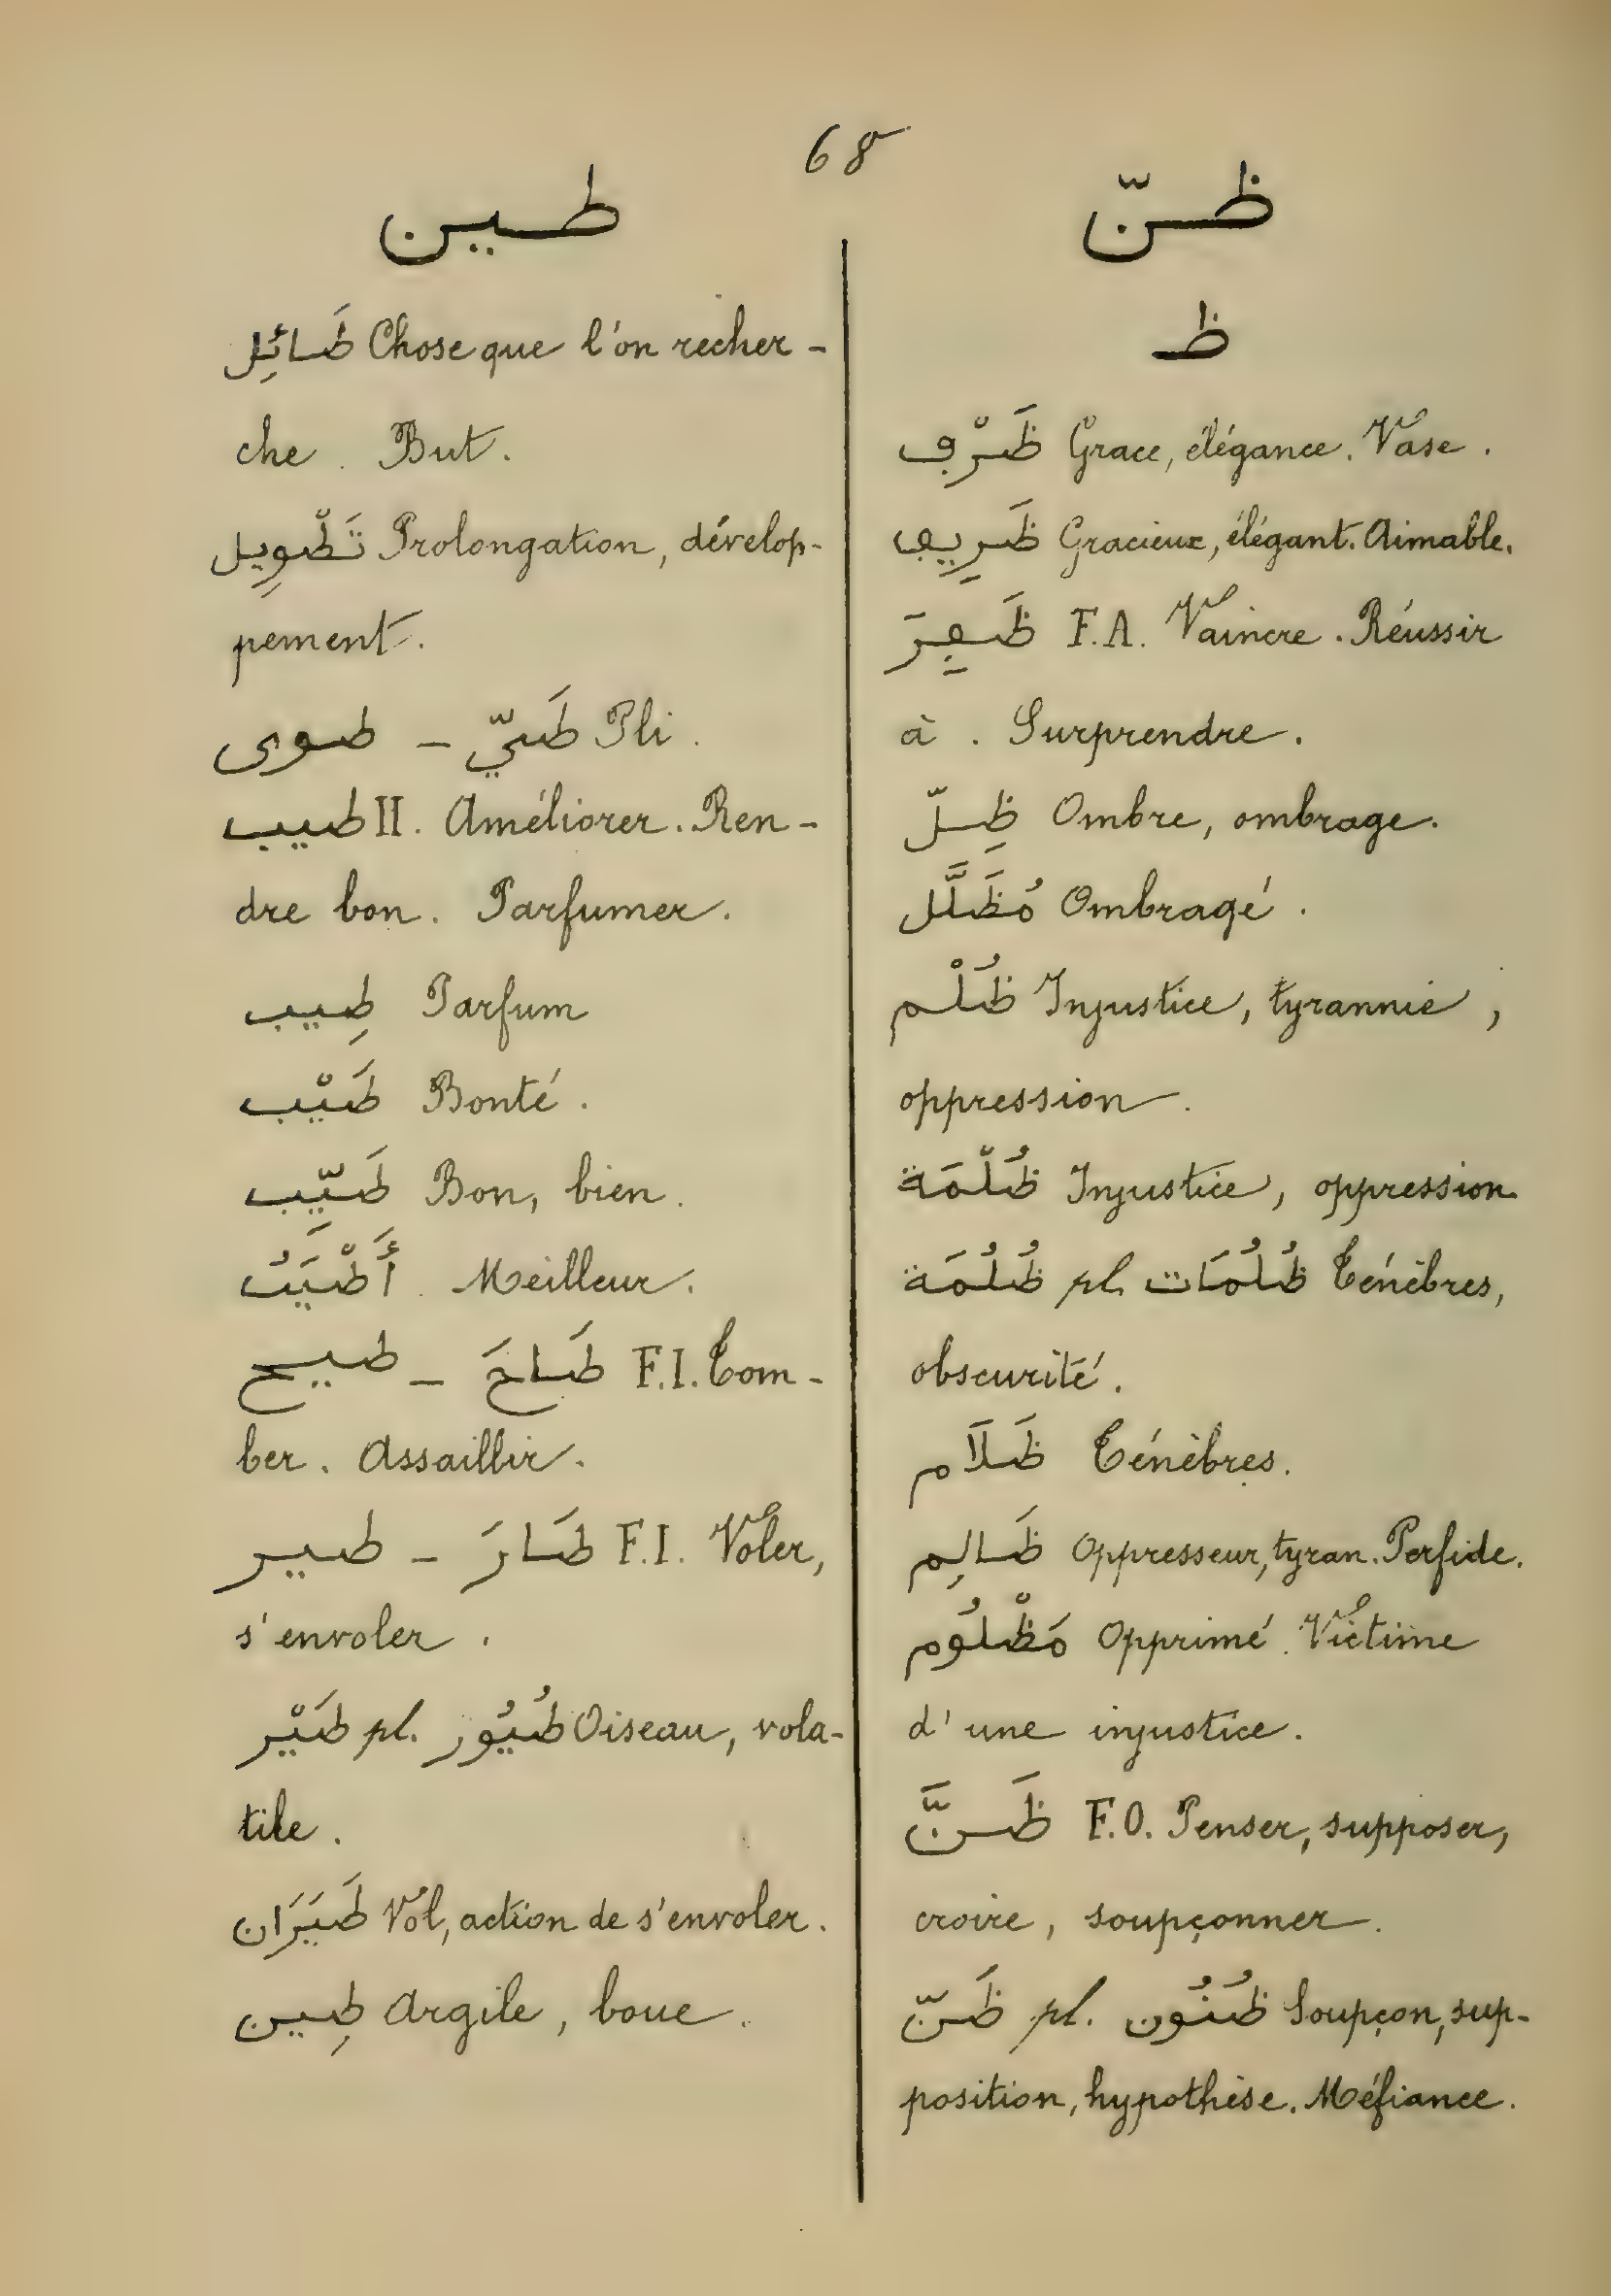 68
طين
طَائِل Chose que l'on recher-
che. But.
تَطْوِيل Prolongation, dévelop-
pement.
طوى – طَيّ Pli.
طيب II. Améliorer. Ren-
dre bon. Parfumer.
طِيب Parfum
طَيْب Bonté.
طَيِّب Bon, bien.
أَطْيَبُ. Meilleur.
طيح – طَاحَ F.I. Tom-
ber. Assaillir.
طير – طَارَ F.I. Voler,
s'envoler.
طَيْر pl. طُيُور Oiseau, vola-
tile.
طَيَرَان Vol, action de s'envoler.
طِين Argile, boue.
ظنّ
ظ
ظَرْڢ Grace, élégance. Vase.
ظَرِيڢ Gracieux, élégant. Aimable.
ظَڢِرَ F.A. Vaincre. Réussir
à. Surprendre.
ظِلّ Ombre, ombrage.
مُظَلَّل Ombragé.
ظُلْم Injustice, tyrannie,
oppression.
ظُلّمَة Injustice, oppression
ظُلُمَة pl. ظُلُمَات Ténèbres,
obscurité.
ظَلَام Ténèbres.
ظَالِم Oppresseur, tyran. Perfide.
مَظْلُوم Opprimé. Victime
d'une injustice.
ظَنَّ F.O. Penser, supposer,
croire, soupçonner.
ظَنّ pl. ظُنُون Soupçon, sup-
position, hypothèse. Méfiance.